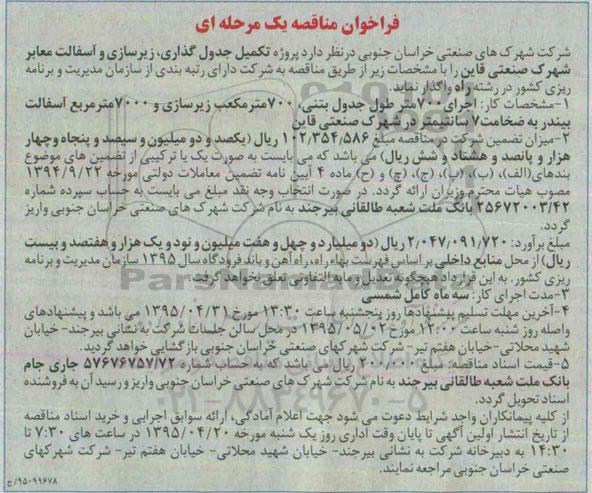 فراخوان مناقصه یک مرحله ای
شرکت شهرک های صنعتی خراسان جنوبی درنظر دارد پروژه تکمیل جدول گذاری، زیرسازی و آسفالت معابر
شهرک صنعتی قاین را با مشخصات زیر از طریق مناقصه به شرکت دارای رتبه بندی از سازمان مدیریت و برنامه
ریزی کشور در رشته راه واگذار نماید.
۱-مشخصات کار: اجرای ۷۰۰متر طول جدول بتنی، ۷۰۰مترمکعب زیرسازی و ۷۰۰۰مترمربع آسفالت
بیندر به ضخامت ۷ سانتیمتر در شهرک صنعتی قاین
۲-میزان تضمین شرکت در مناقصه مبلغ ۱۰۲/۳۵۴/۵۸۶ ریال (یکصد و دو میلیون و سیصد و پنجاه وچهار
هزار و پانصد و هشتاد و شش ریال) می باشد که می بایست به صورت یک یا ترکیبی از تضمین های موضوع
بندهای(الف)، (ب)، (پ)، (ج)، (چ) و (ح) ماده ۴ آیین نامه تضمین معاملات دولتی مورخه ۱۳۹۴/۹/۲۲
مصوب هیات محترم وزیران ارائه گردد. در صورت انتخاب وجه نقد مبلغ می بایست به حساب سپرده شماره
۲۵۶۷۲۰۰۳/۴۲ بانک ملت شعبه طالقانی بیرجند به نام شرکت شهرک های صنعتی خراسان جنوبی واریز
گردد.
مبلغ برآورد: ۲/۰۴۷/۰۹۱/۷۲۰ ریال (دو میلیارد و چهل و هفت میلیون و نود و یک هزار و هفتصد و بیست
ریال) از محل منابع داخلی بر اساس فهرست بهاء راه، راه آهن و باند فرودگاه سال ۱۳۹۵ سازمان مدیریت و برنامه
ریزی کشور. به این قرارداد هیچگونه تعدیل و مابه التفاوتی تعلق نخواهد گرفت.
۳-مدت اجرای کار: سه ماه کامل شمسی
۴-آخرین مهلت تسلیم پیشنهادها روز پنجشنبه ساعت ۱۳:۳۰ مورخ ۱۳۹۵/۰۴/۳۱ می باشد و پیشنهادهای
واصله روز شنبه ساعت ۱۲:۰۰ مورخ ۱۳۹۵/۰۵/۰۲ در محل سالن جلسات شرکت به نشانی بیرجند- خیابان
شهید محلاتی-خیابان هفتم تیر- شرکت شهرک های صنعتی خراسان جنوبی بازگشایی خواهد گردید.
۵-قیمت اسناد مناقصه: مبلغ ۲۰۰/۰۰۰ ریال می باشد که به حساب شماره ۵۷۶۷۶۷۵۷/۷۲ جاری جام
بانک ملت شعبه طالقانی بیرجند به نام شرکت شهرک های صنعتی خراسان جنوبی واریز و رسید آن به فروشنده
اسناد تحویل گردد.
از کلیه پیمانکاران واجد شرایط دعوت می شود جهت اعلام آمادگی، ارائه سوابق اجرایی و خرید اسناد مناقصه
از تاریخ انتشار اولین آگهی تا پایان وقت اداری روز یک شنبه مورخه ۱۳۹۵/۰۴/۲۰ در ساعت های ۷:۳۰ تا
۱۴:۳۰ به دبیرخانه شرکت به نشانی بیرجند- خیابان شهید محلاتی- خیابان هفتم تیر- شرکت شهرکهای
صنعتی خراسان جنوبی مراجعه نمایند.
۹۵۰۹۹۶۷۸/ح
ParsNamadData
۰۲۱-۸۸۳۴۹۶۷۰-۵